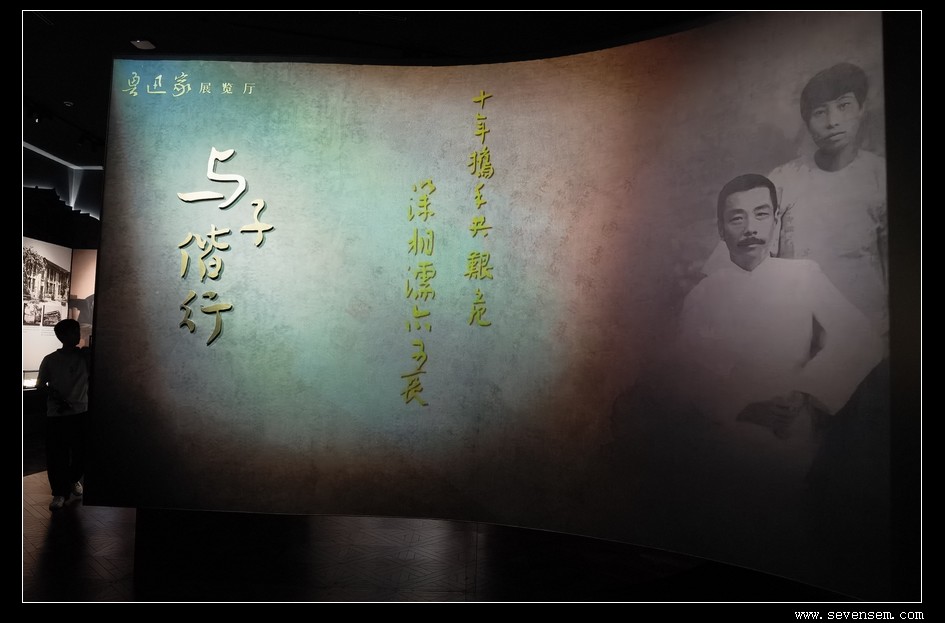 鲁迅家展览厅
与子偕行
十年携手共艰危
以沫相濡亦可哀
www.sevensem.com